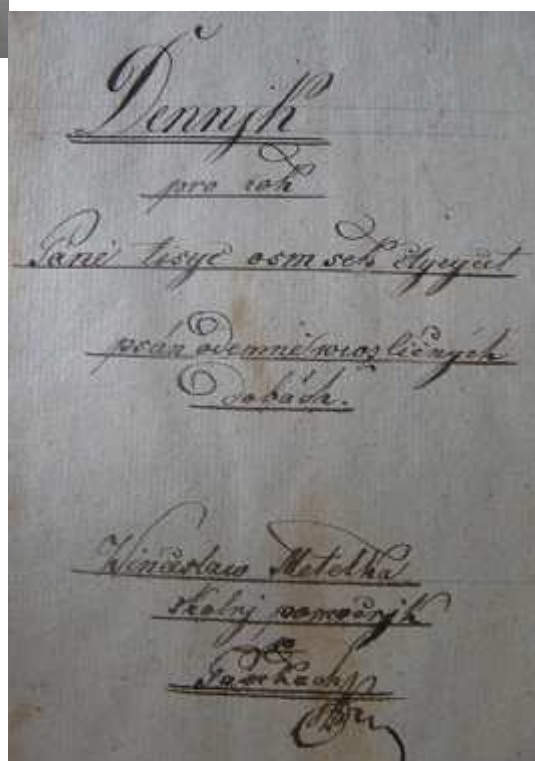 Dennjk
pro rok
Páně tisyc osm set čtyrycet
psán odemně w rozličných
dobách.
Winceslaw Metelka
školnj pomocnjk
w
Pasekach